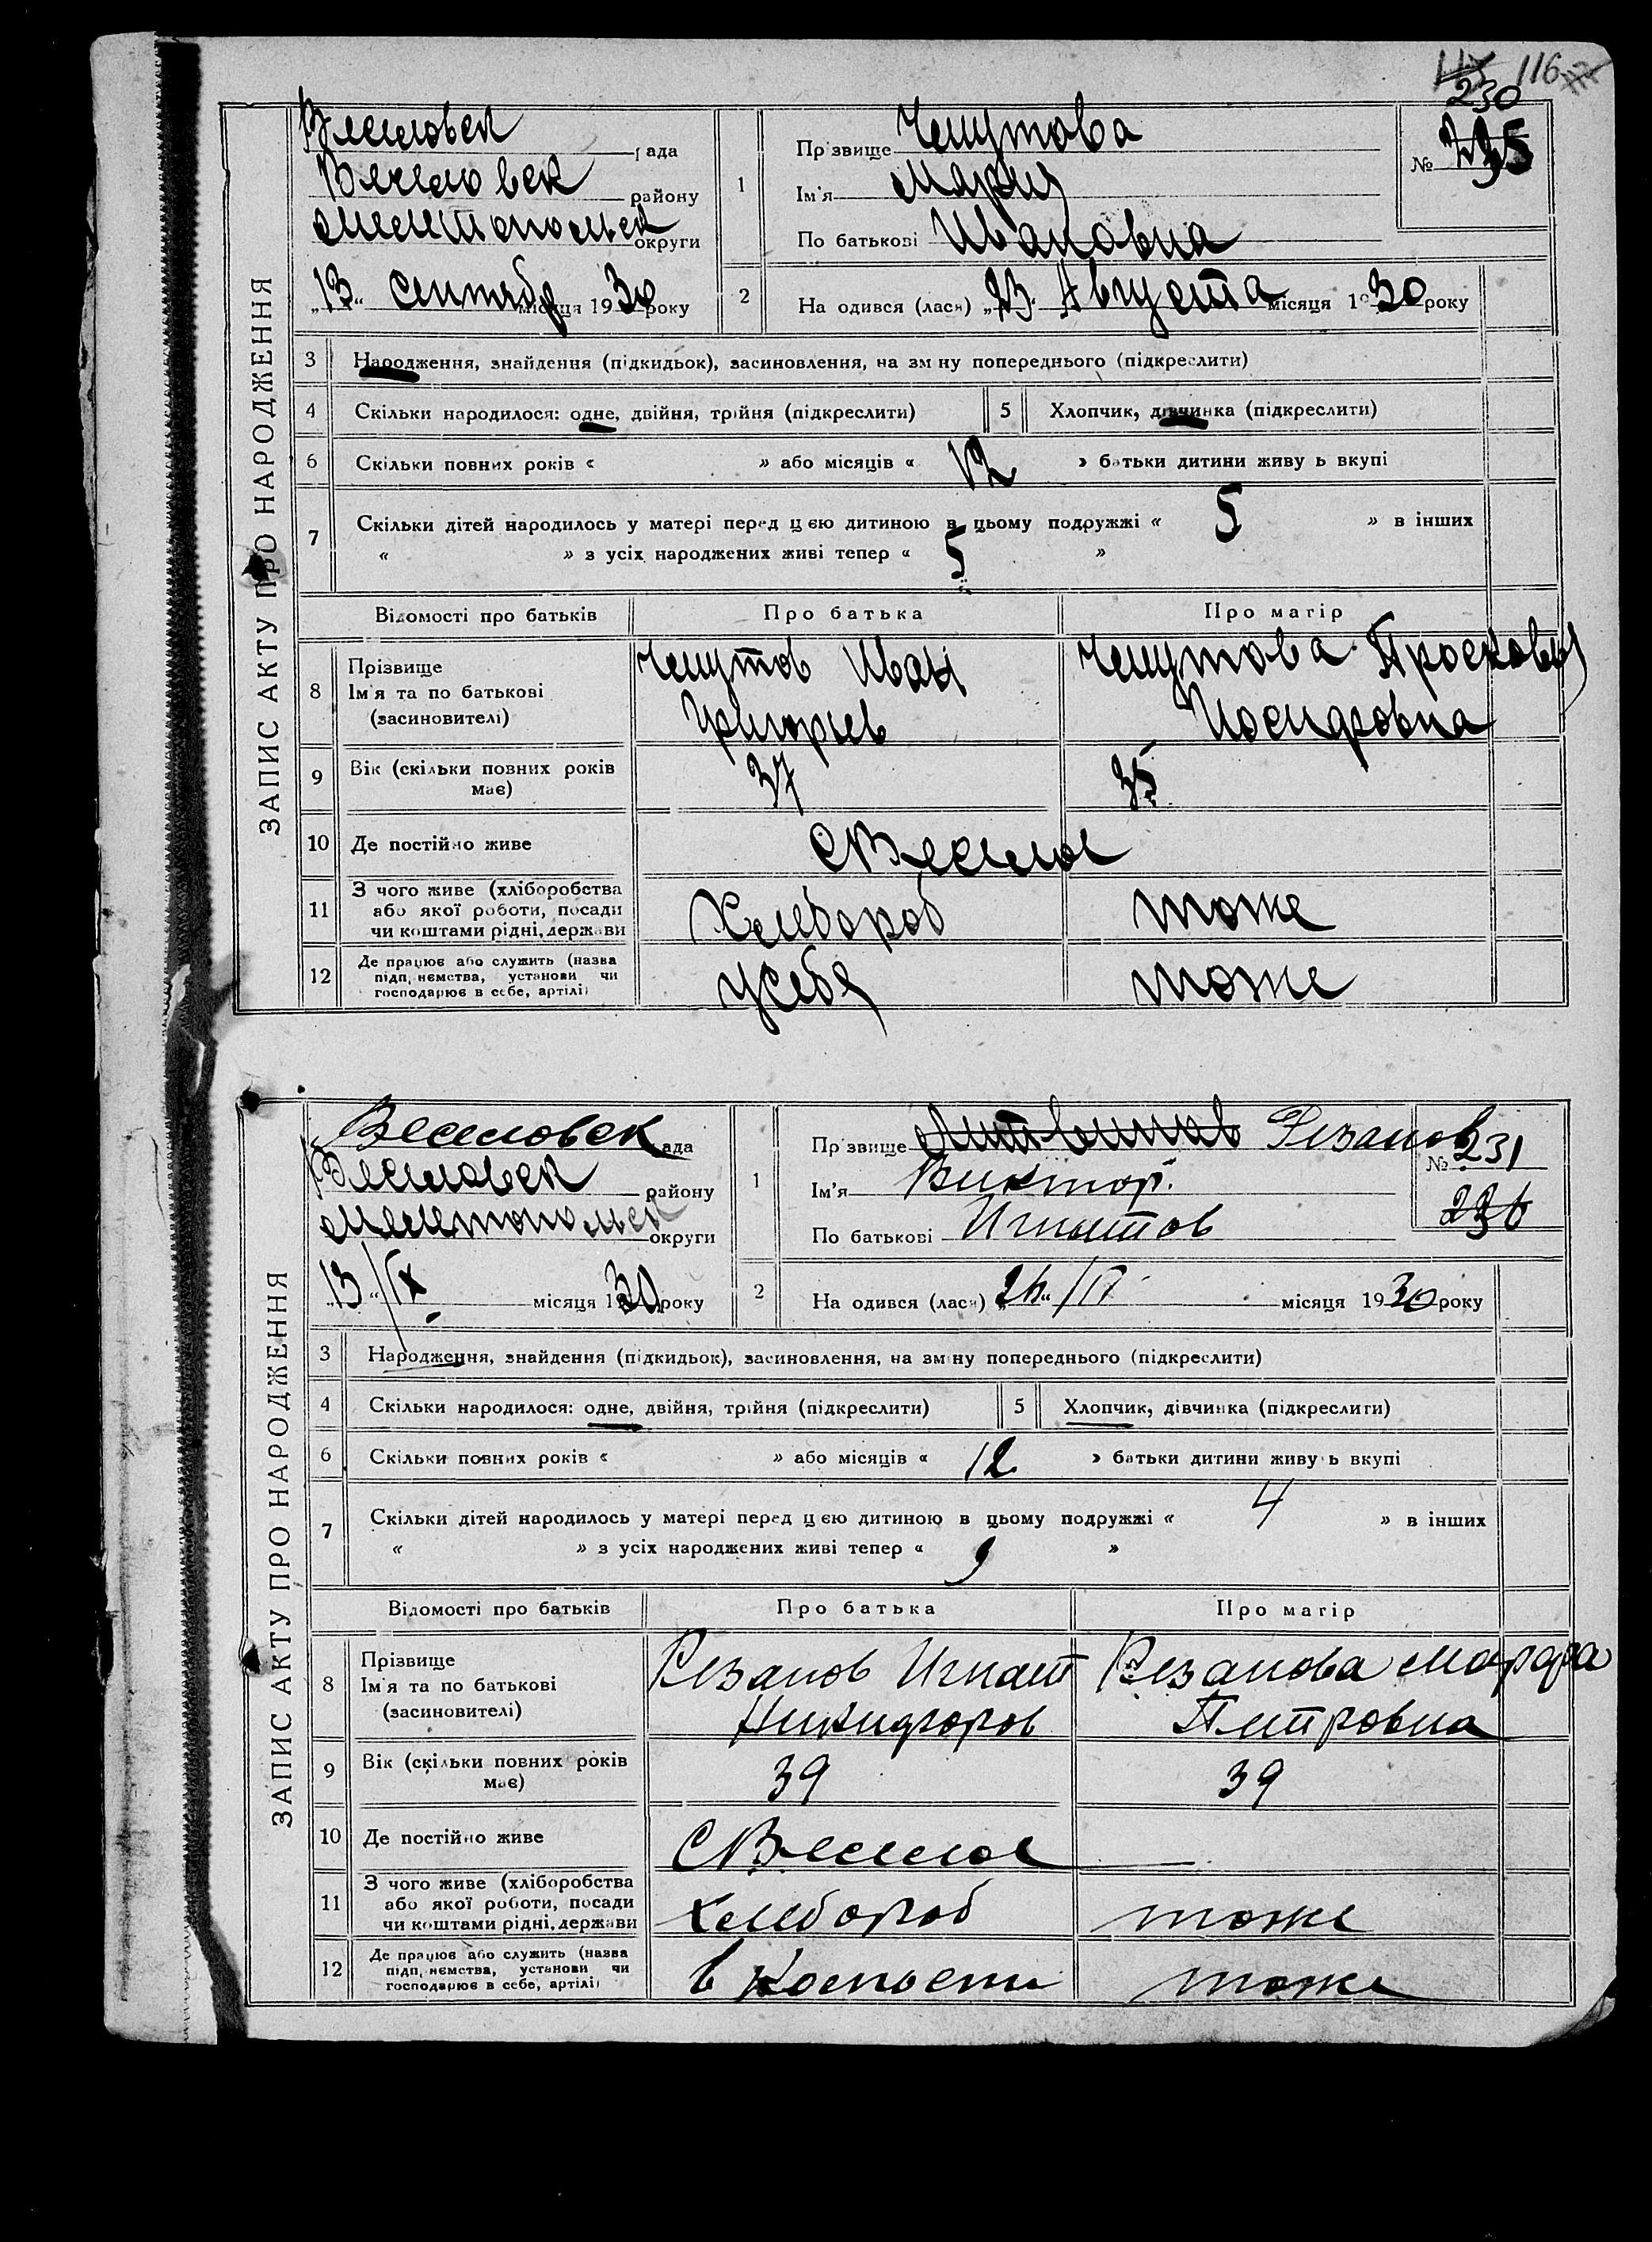 116
230
ЗАПИС АКТУ ПРО НАРОДЖЕННЯ
Веселовск рада
Веселовск району
Мелитопольск округи
„13“ сентябр місяця 1930 року
1 Прізвище Чешутова
Ім'я Мария
По батькові Ивановна
№ 235
2 На одився (лася) „23“ Августа місяця 1930 року
3 Народження, знайдення (підкидьок), засиновлення, на зміну попереднього (підкреслити)
4 Скільки народилося: одне, двійня, трійня (підкреслити) 5 Хлопчик, дівчинка (підкреслити)
6 Скільки повних років « » або місяців « 12 » батьки дитини живу ь вкупі
7 Скільки дітей народилось у матері перед цією дитиною в цьому подружжі « 5 » в інших
« » з усіх народжених живі тепер « 5 »
Відомості про батьків Про батька Про матір
8 Прізвище Ім'я та по батькові (засиновителі)
Чешутов Иван Чешутова Просковья
Григорьев Иосифовна
9 Вік (скільки повних років має) 37 35
10 Де постійно живе с Веселое
11 З чого живе (хліборобства або якої роботи, посади чи коштами рідні, держави Хлебороб тоже
12 Де працює або служить (назва підп, немства, установи чи господарює в себе, артілі) у себя тоже
ЗАПИС АКТУ ПРО НАРОДЖЕННЯ
Веселовск рада
Веселовск району
Мелитопольск округи
„13“/IX місяця 1930 року
1 Прізвище Резанов
Ім'я Виктор
По батькові Игнатов
№ 231
236
2 На одився (лася) місяця 1930 року
3 Народження, знайдення (підкидьок), засиновлення, на зміну попереднього (підкреслити)
4 Скільки народилося: одне, двійня, трійня (підкреслити) 5 Хлопчик, дівчинка (підкреслити)
6 Скільки повних років « » або місяців « 12 » батьки дитини живу ь вкупі
7 Скільки дітей народилось у матері перед цією дитиною в цьому подружжі « 4 » в інших
« » з усіх народжених живі тепер « »
Відомості про батьків Про батька Про матір
8 Прізвище Ім'я та по батькові (засиновителі)
Резанов Игнат Резанова Марфа
Никифоров Петровна
9 Вік (скільки повних років має) 39 39
10 Де постійно живе с Веселое —
11 З чого живе (хліборобства або якої роботи, посади чи коштами рідні, держави хлебороб тоже
12 Де працює або служить (назва підп, немства, установи чи господарює в себе, артілі) в тоже